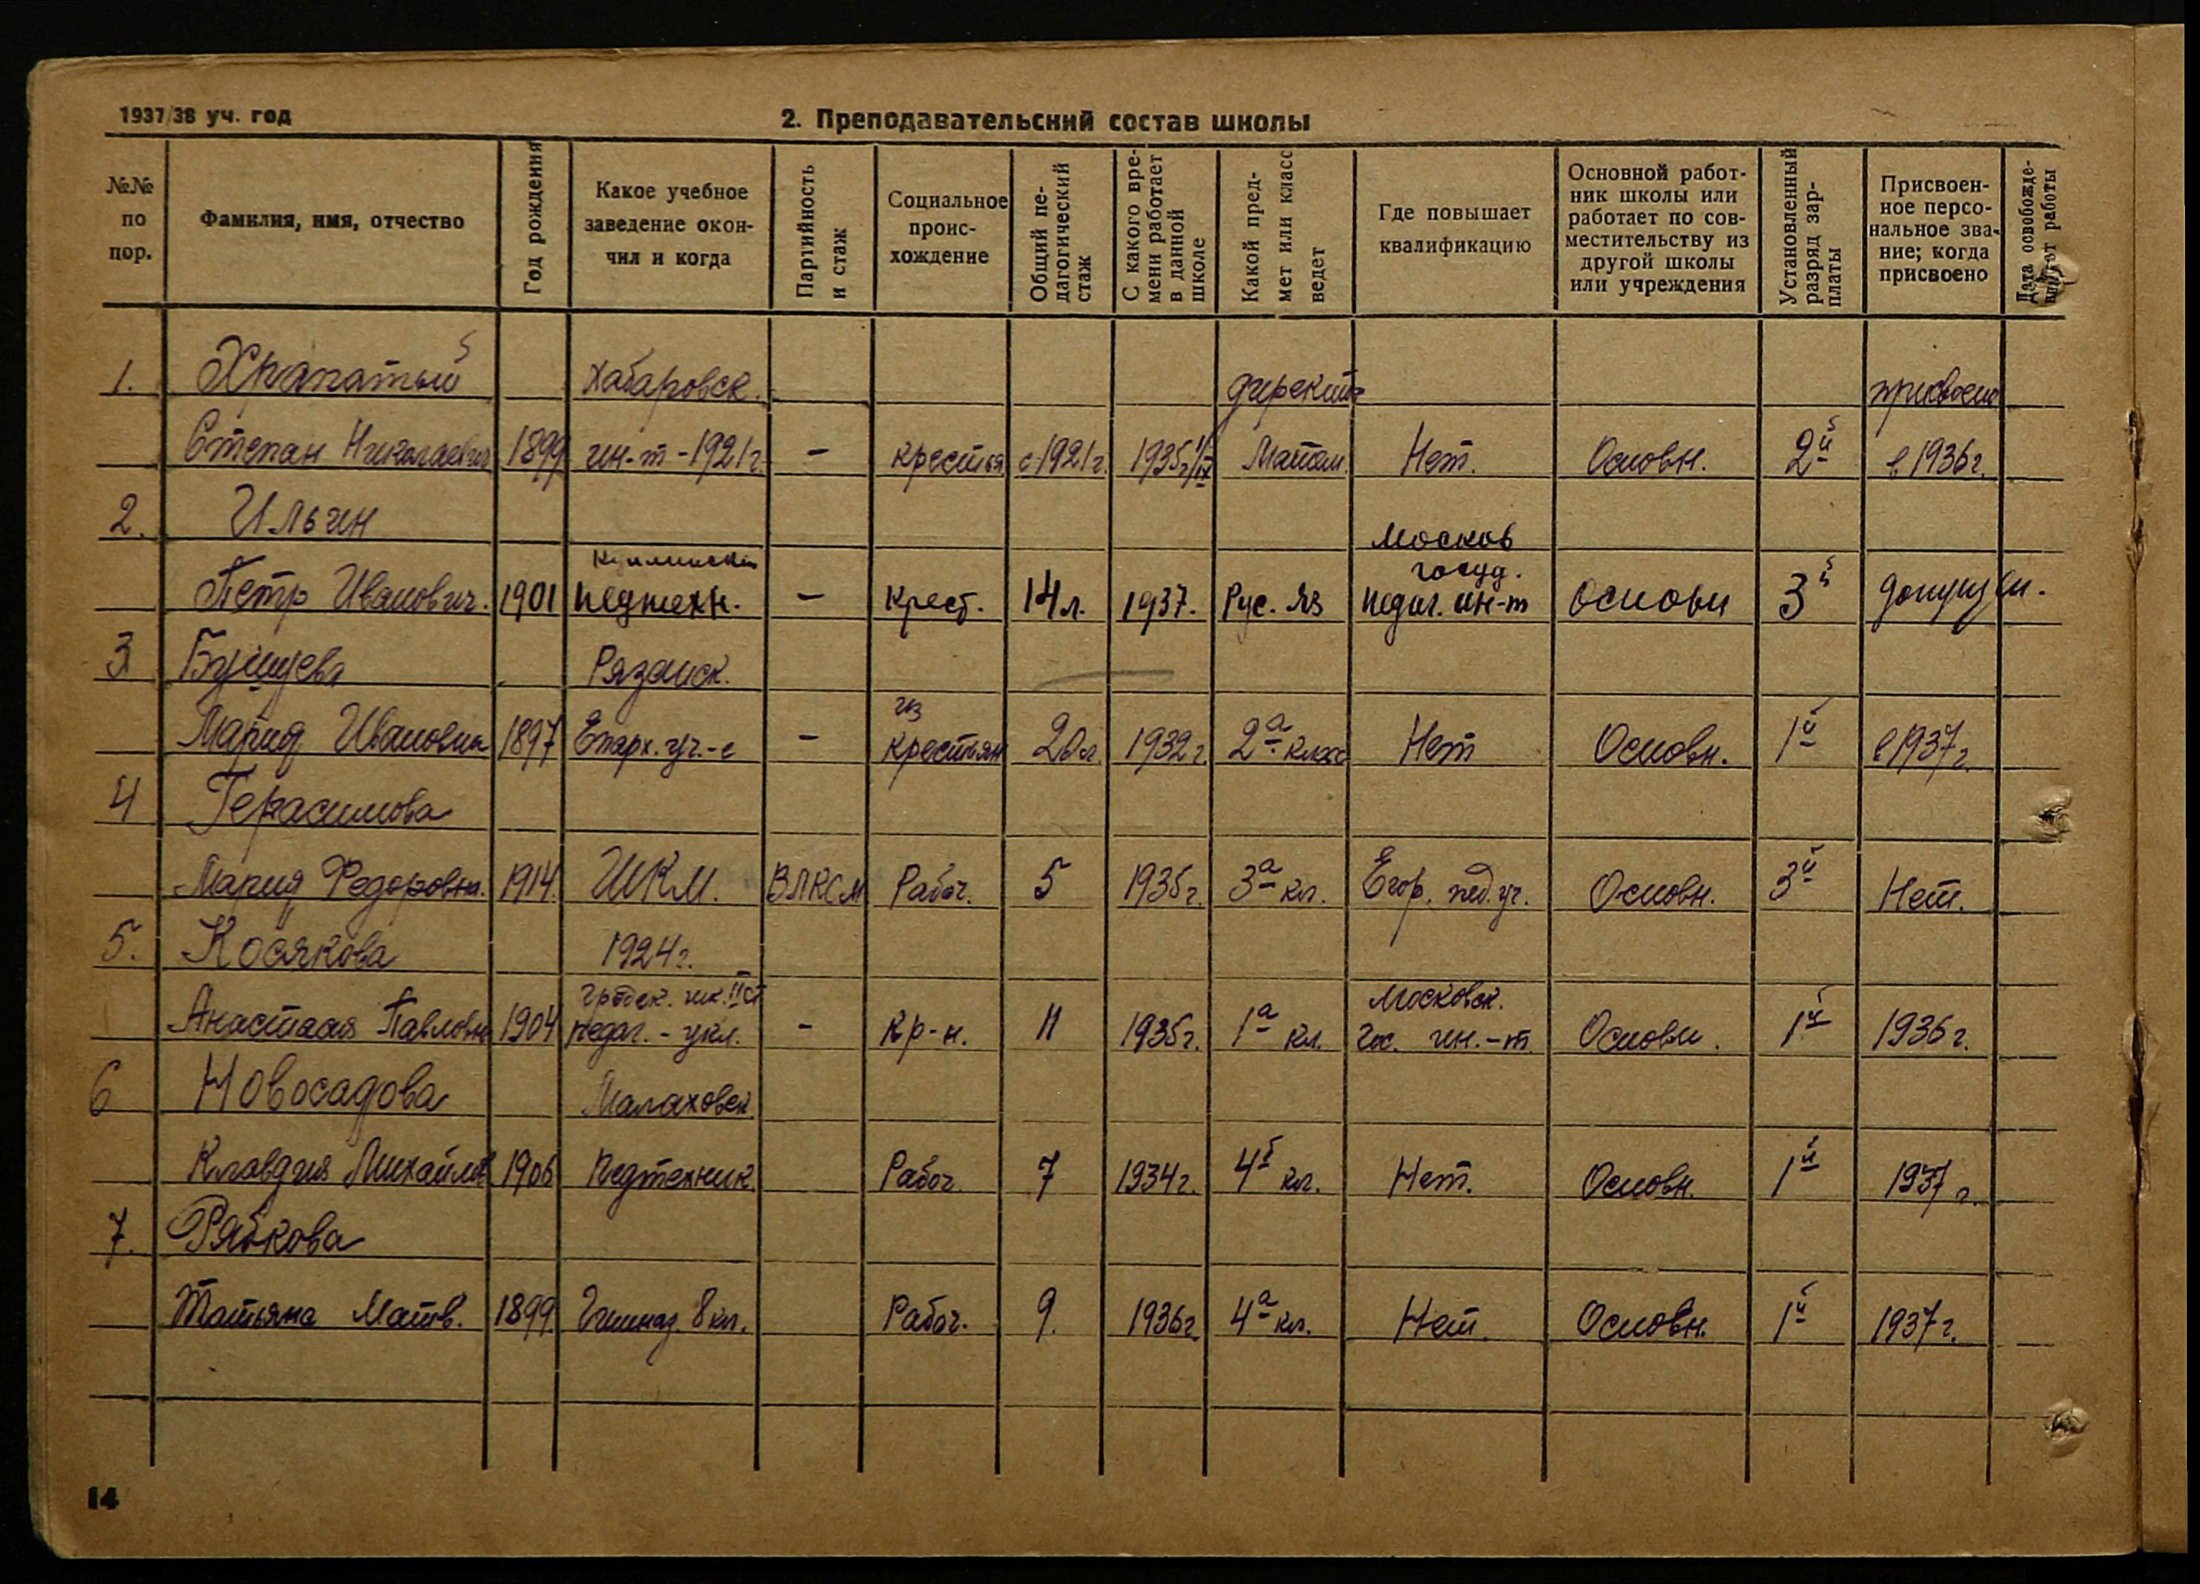 1937/38 уч. год
2. Преподавательский состав школы
№№ по пор.
Фамилия, имя, отчество
Год рождения
Какое учебное заведение окон-чил и когда
Партийность и стаж
Социальное проис-хождение
Общий пе-дагогический стаж
С какого вре-мени работает в данной школе
Какой пред-мет или класс ведет
Где повышает квалификацию
Основной работ-ник школы или работает по сов-местительству из другой школы или учреждения
Установленный разряд зар-платы
Присвоен-ное персо-нальное зва-ние; когда присвоено
Дата освобожде- от работы
1. Храпатый Хабаровск. директ. присвоено
Степан Николаевич 1899 ин-т - 1921г. – крестья с 1921г. 1935г. 1/IX Матем. Нет. Основн. 2й в 1936г.
2. Ильин Москов
госуд.
Петр Иванович. 1901 педтехн. – крест. 14 л. 1937. Рус. яз педаг. ин-т основн 3й допущен.
3 Рязанск.
из
Мария Ивановна 1897 Епарх. уч.-е – крестьян 20л. 1932г. 2а класс Нет Основн. 1й в 1937г.
4 Герасимова
Мария Федоровна. 1914. ШКМ. ВЛКСМ Рабоч. 5 1935г. 3а кл. Егор. пед. уч. Основн. 3й Нет.
5. Косякова 1924г.
шк. II ст Московск.
Анастасия Павловн 1904 педаг. - укл. – кр-н. 11 1935г. 1а кл. Гос. ин.-т. Основн. 1й 1936г.
6 Новосадова Малаховск.
Клавдия Михайлов 1906 Педтехник. Рабоч. 7 1934г. 4б кл. Нет. Основн. 1й 1937 г.
7. Рябкова
Татьяна Матв. 1899. Гимназ. 8 кл. Рабоч. 9. 1936г. 4а кл. Нет. Основн. 1й 1937г.
14